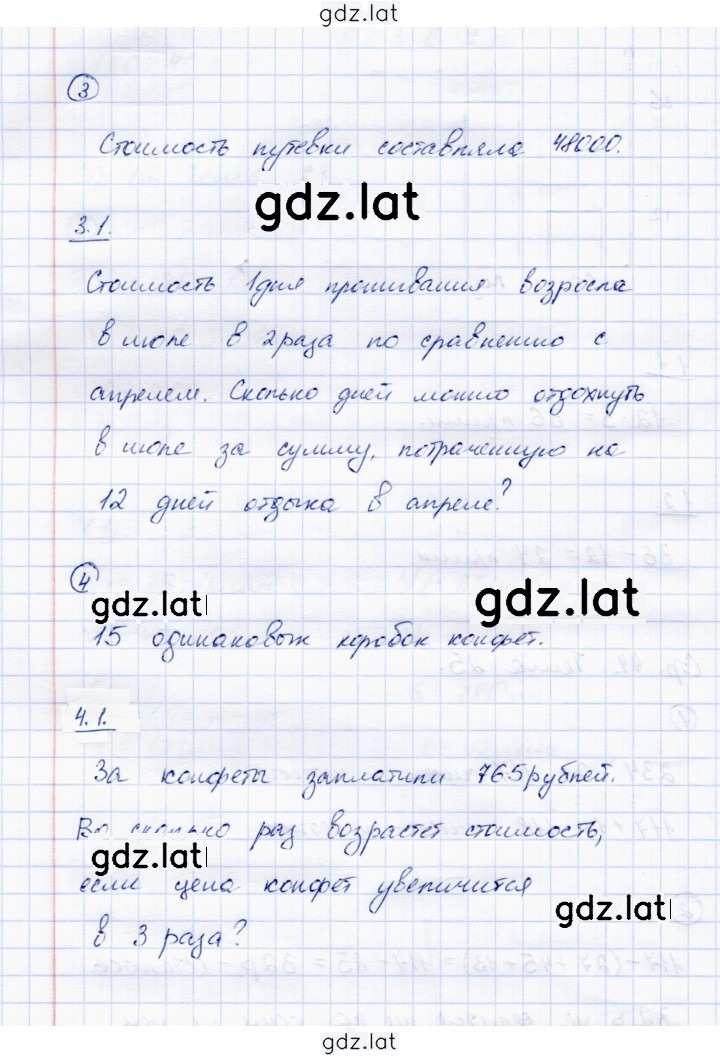 gdz.lat
3
Стоимость путевки составляла 48000.
gdz.lat
3.1.
Стоимость 1 дня проживания возросла
в июле в 2 раза по сравнению с
апрелем. Сколько дней можно отдохнуть
в июле за сумму, потраченную на
12 дней отдыха в апреле?
4
gdz.lat
gdz.lat
15 одинаковых коробок конфет.
4.1.
За конфеты заплатили 765 рублей.
Во сколько раз возрастет стоимость,
gdz.lat
если цена конфет увеличится
gdz.lat
в 3 раза?
gdz.lat